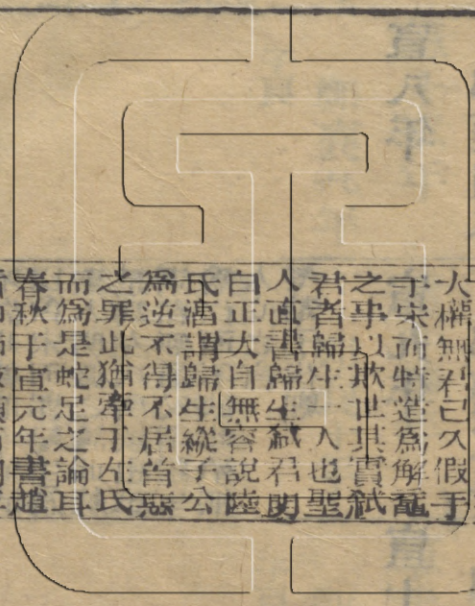 大權無君已久假手
于宋而特造爲解黿
之事以欺世其實弑
君者歸生一人也聖
人直書歸生弑君明
白正大自無容說陸
氏酒謂歸生縱子公
爲逆不得不居首惡
之罪此猶牽于左氏
而爲是蛇足之論耳
春秋于宣元年書趙